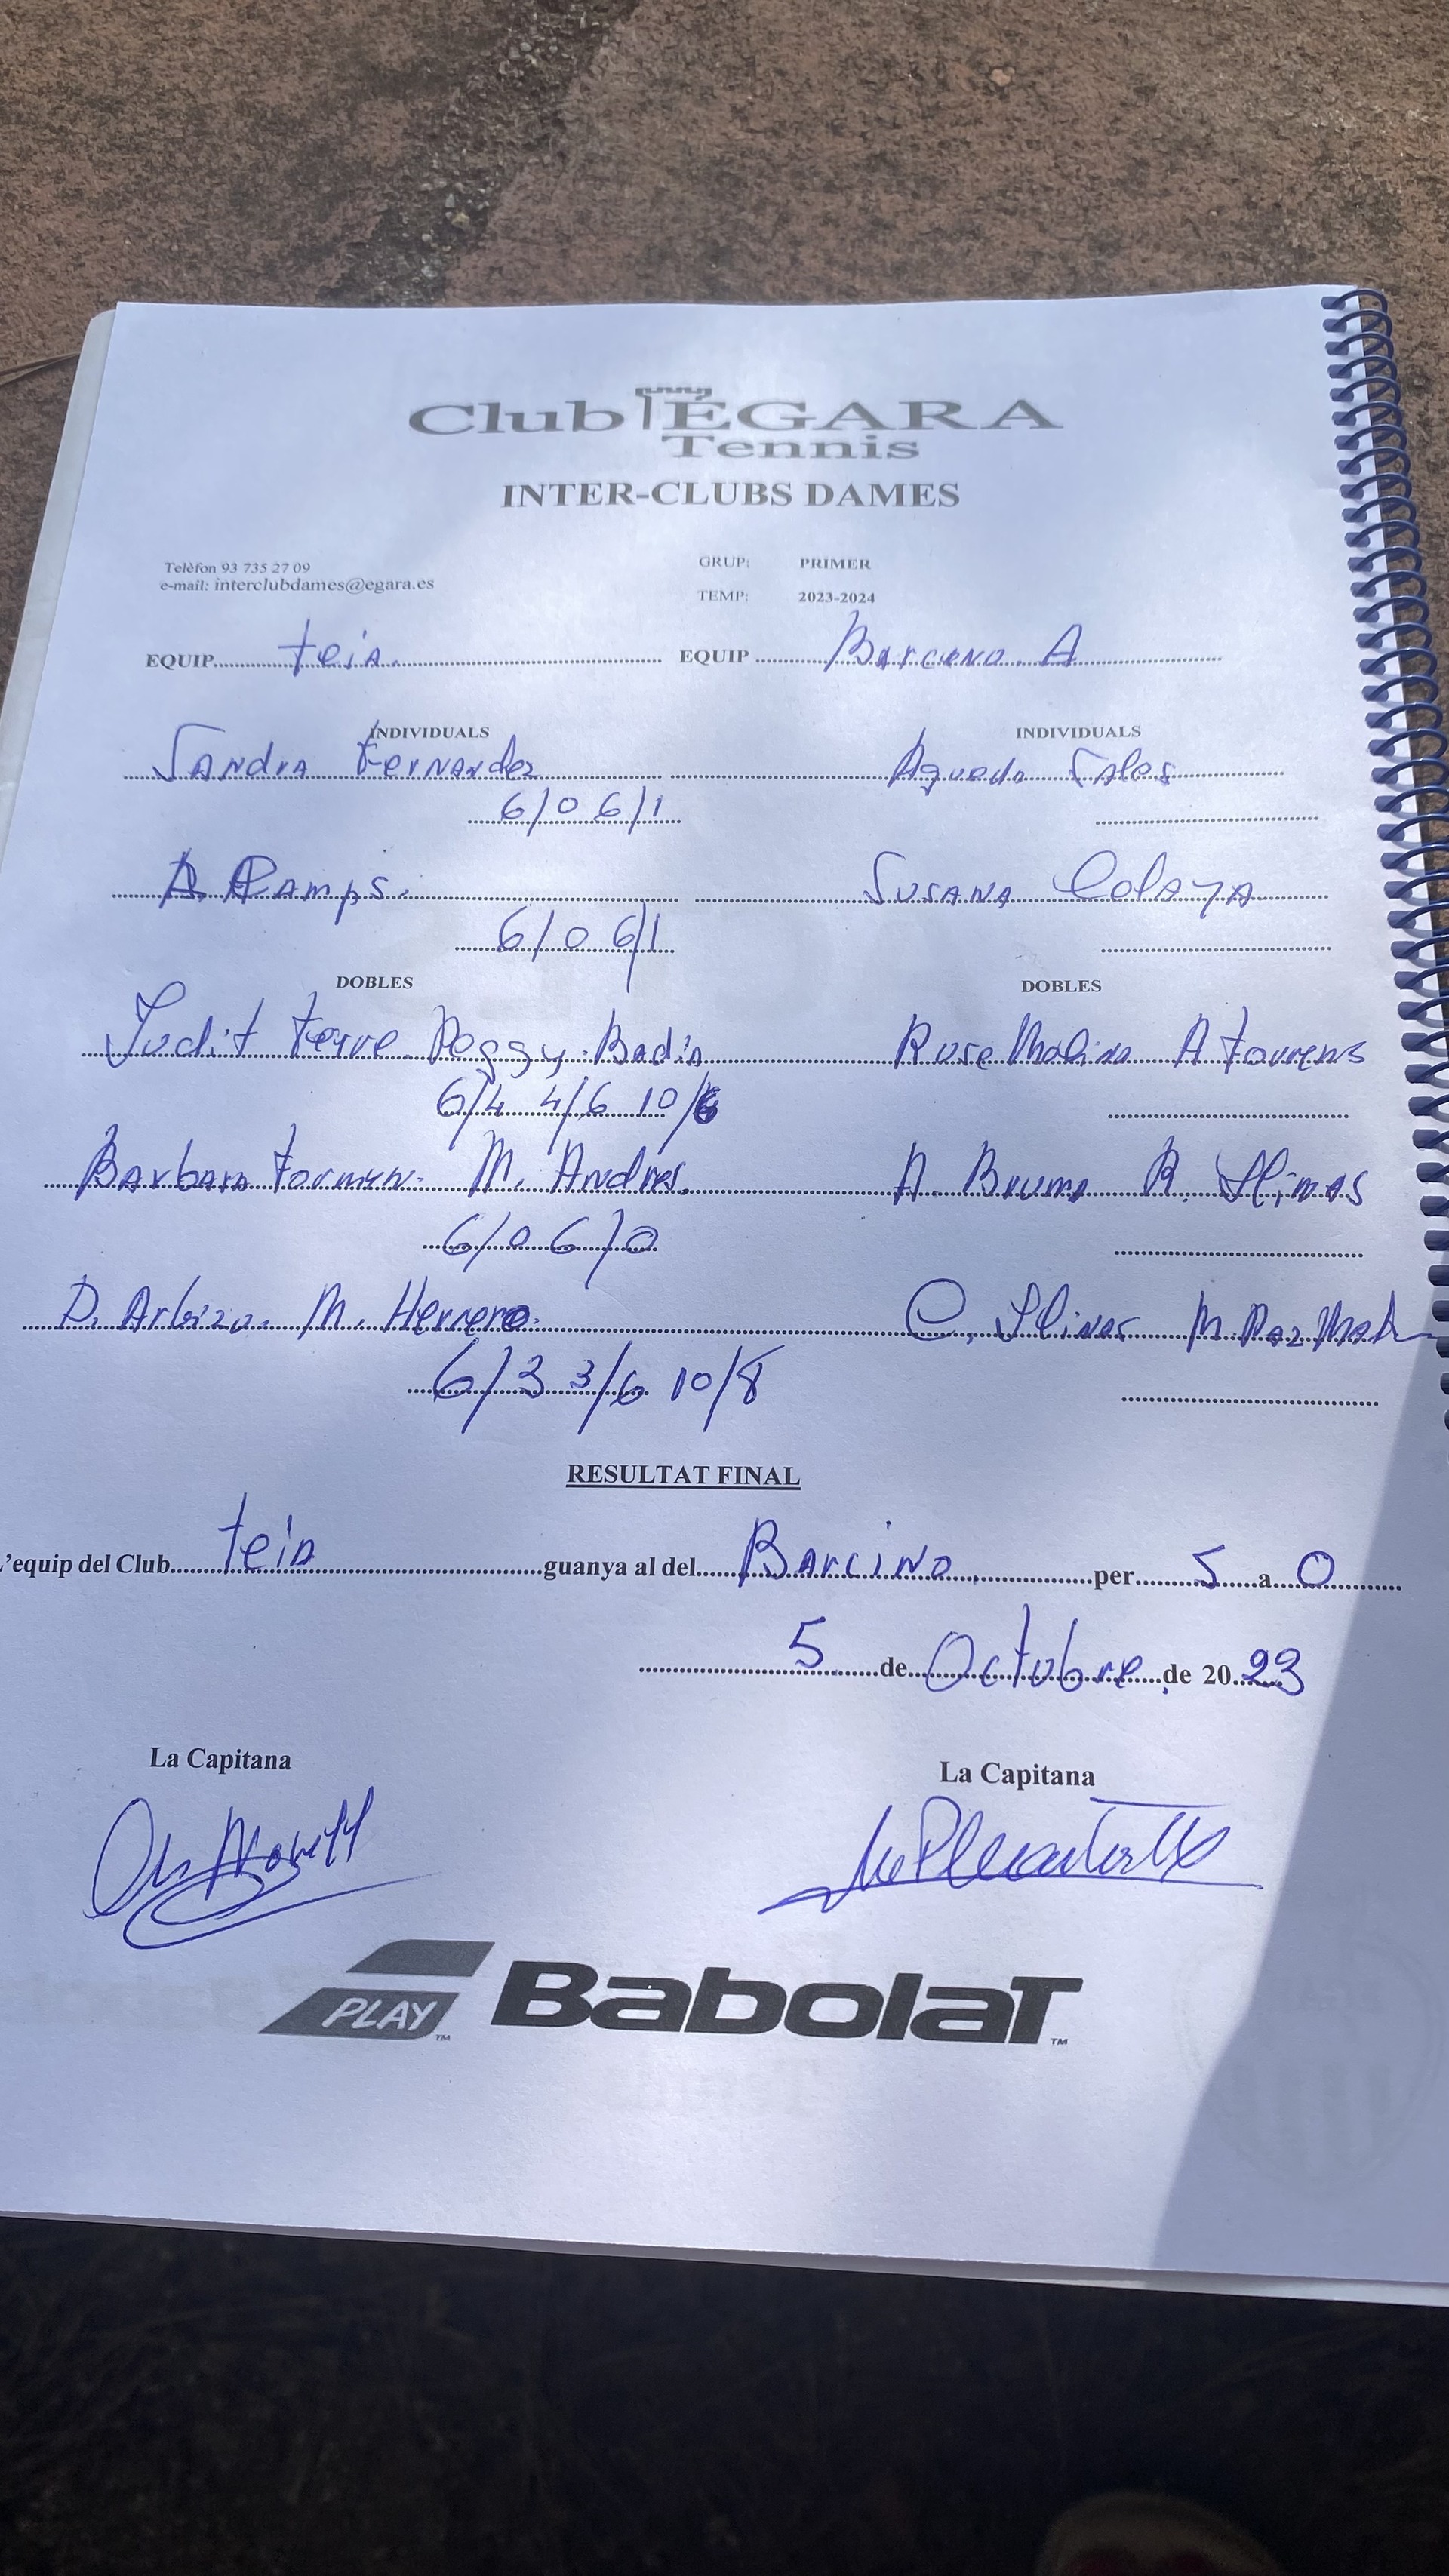 Club ÈGARA
Tennis
INTER-CLUBS DAMES
Telèfon 93 735 27 09
e-mail: interclubdames@egara.es
GRUP: PRIMER
TEMP: 2023-2024
EQUIP teià. EQUIP Barcino. A
INDIVIDUALS INDIVIDUALS
Sandra Fernandez Agueda
6/0 6/1
A. Camps. Susana Celaya
6/0 6/1
DOBLES DOBLES
Judit Peggy Badia Rosa Molina A
6/4 4/6 10/6
Barbara M. Andres. A. Bruma R.
6/0 6/0
D. Arbizu. M. Herrero. C. M. Paz
6/3 3/6 10/8
RESULTAT FINAL
L'equip del Club teià guanya al del Barcino per 5 a 0
5 de Octubre de 2023
La Capitana La Capitana
PLAY BabolaT